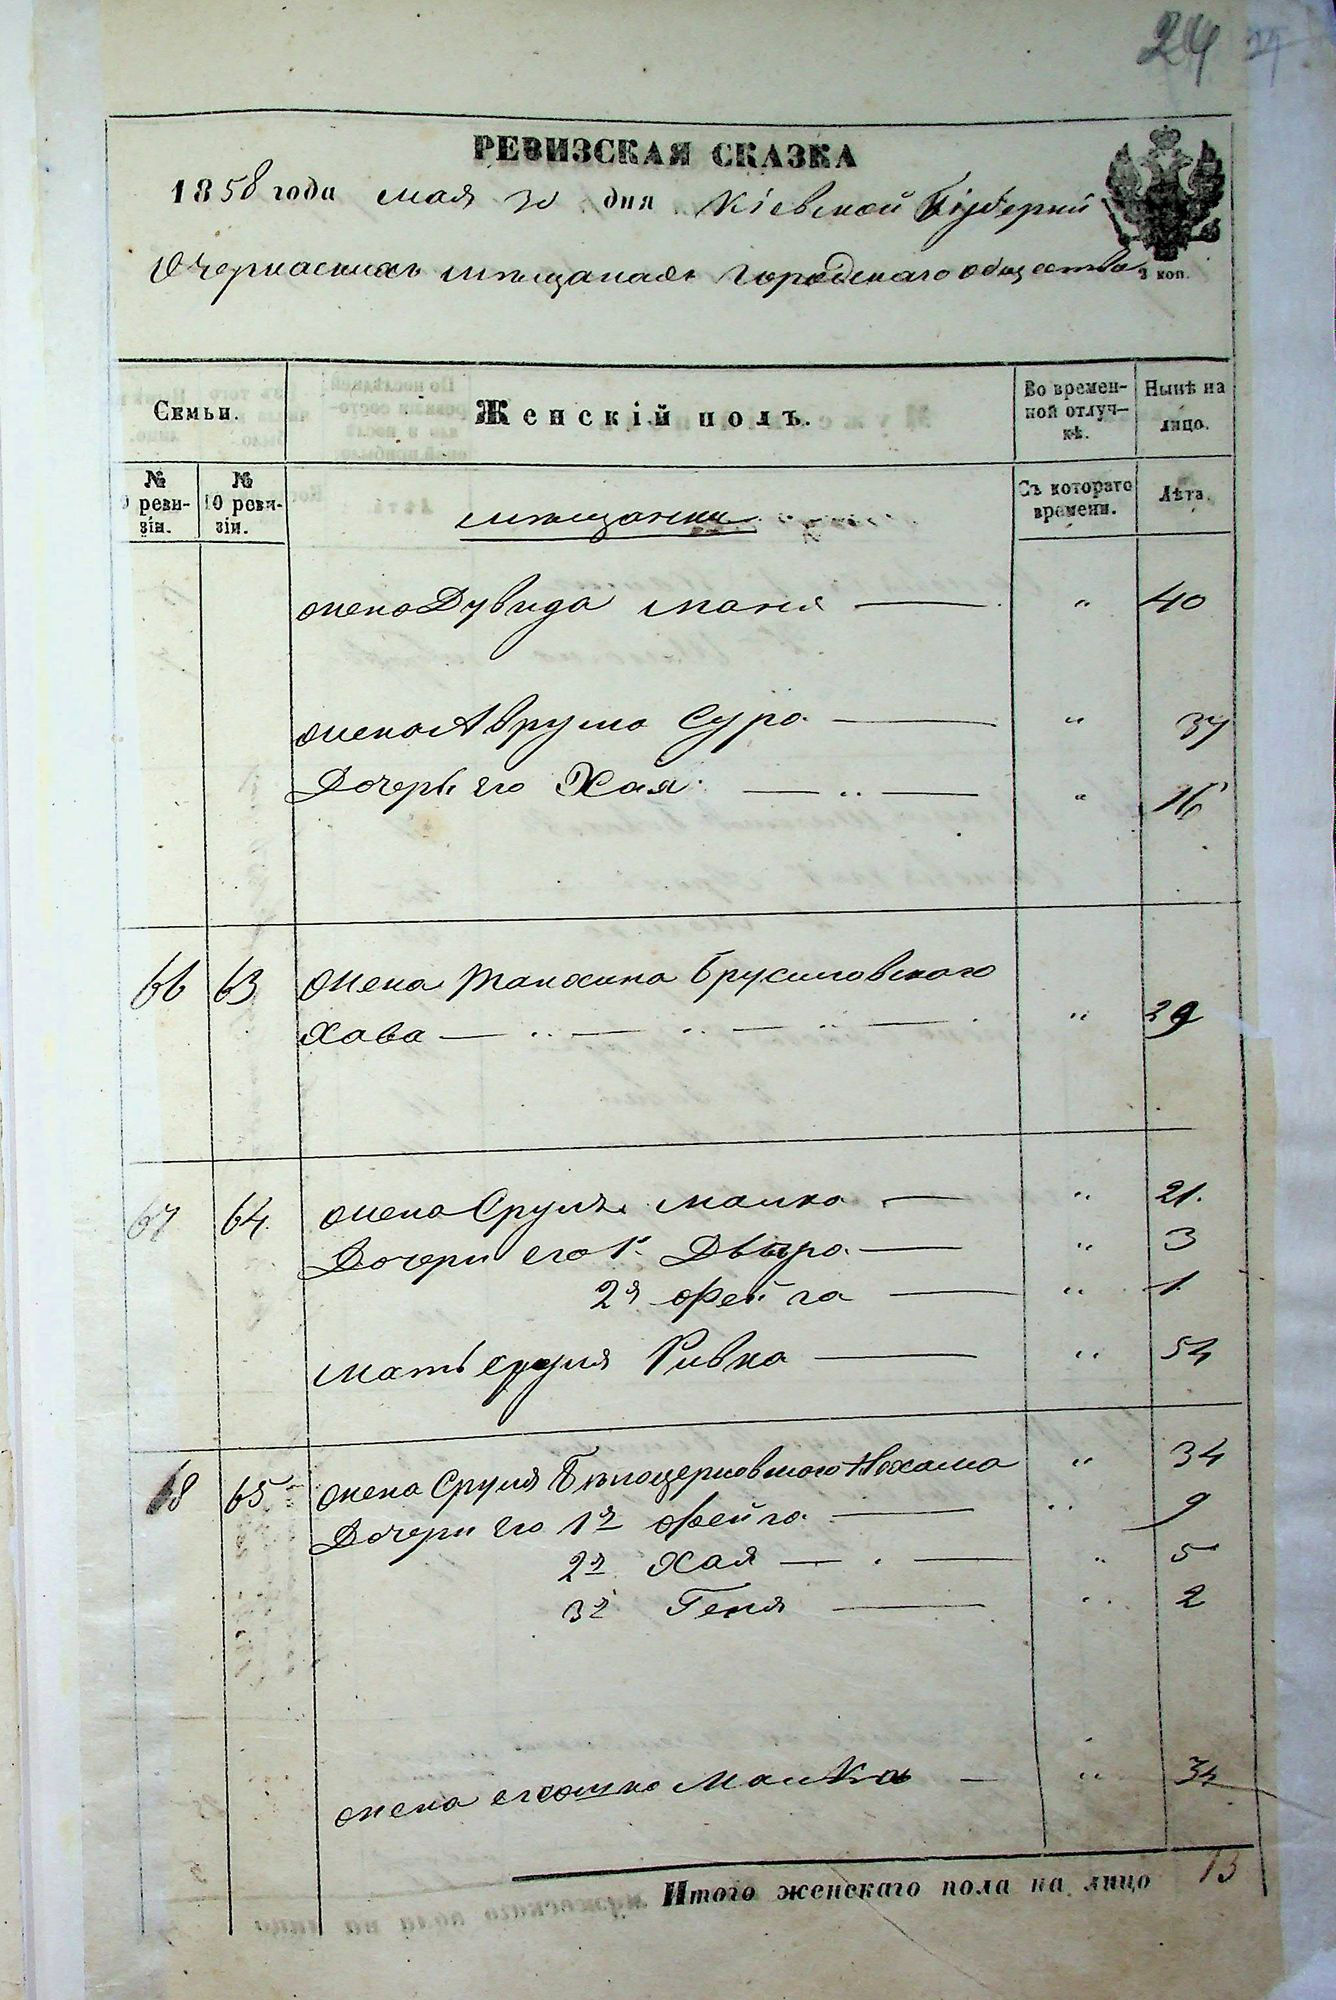 24 24
РЕВИЗСКАЯ СКАЗКА
1858 года мая 30 дня Кіевской Губерніи
О Черкаскихъ мѣщанахъ Городскаго общества
3 коп.
Семьи. Женскій полъ. Во временной отлучкѣ. Нынѣ на лицо.
№ 9 ревизіи. № 10 ревизіи. мѣщанки Съ котораго времени. Лѣта.
жена Дувида Маня — " 40
жена Аврума Сура — " 37
Дочерь его Хая — " — " 16
66 63 жена Брусиловскаго
Хава — " — " — " — " 29
67 64 жена Сруля Малка — " 21.
Дочери его 1я Двыра — " 3
2я Фейга — " 1
мать Сруля Ривка — " 54
68 65 жена Сруля Бѣлоцерковскаго Нехама " 34
Дочери его 1я Фейга — " 9
2я Хая — . — " 5
3я Геня — " 2
жена Малка — " 34
Итого женскаго пола на лицо 13